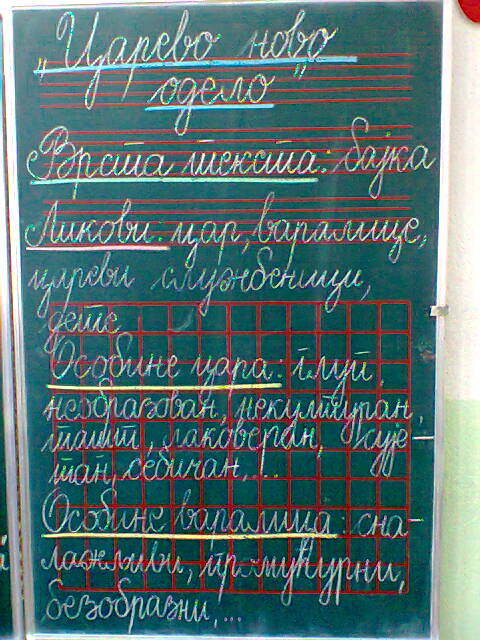 „Царево ново
одело"
Врста текста: бајка
Ликови: цар, варалице,
цареви службеници,
дете
Особине цара: глуп,
необразован, некултуран,
ташт, лаковеран, сује
тан, себичан,...
Особине варалица: сна
лажљиви, промућурни,
безобразни,...